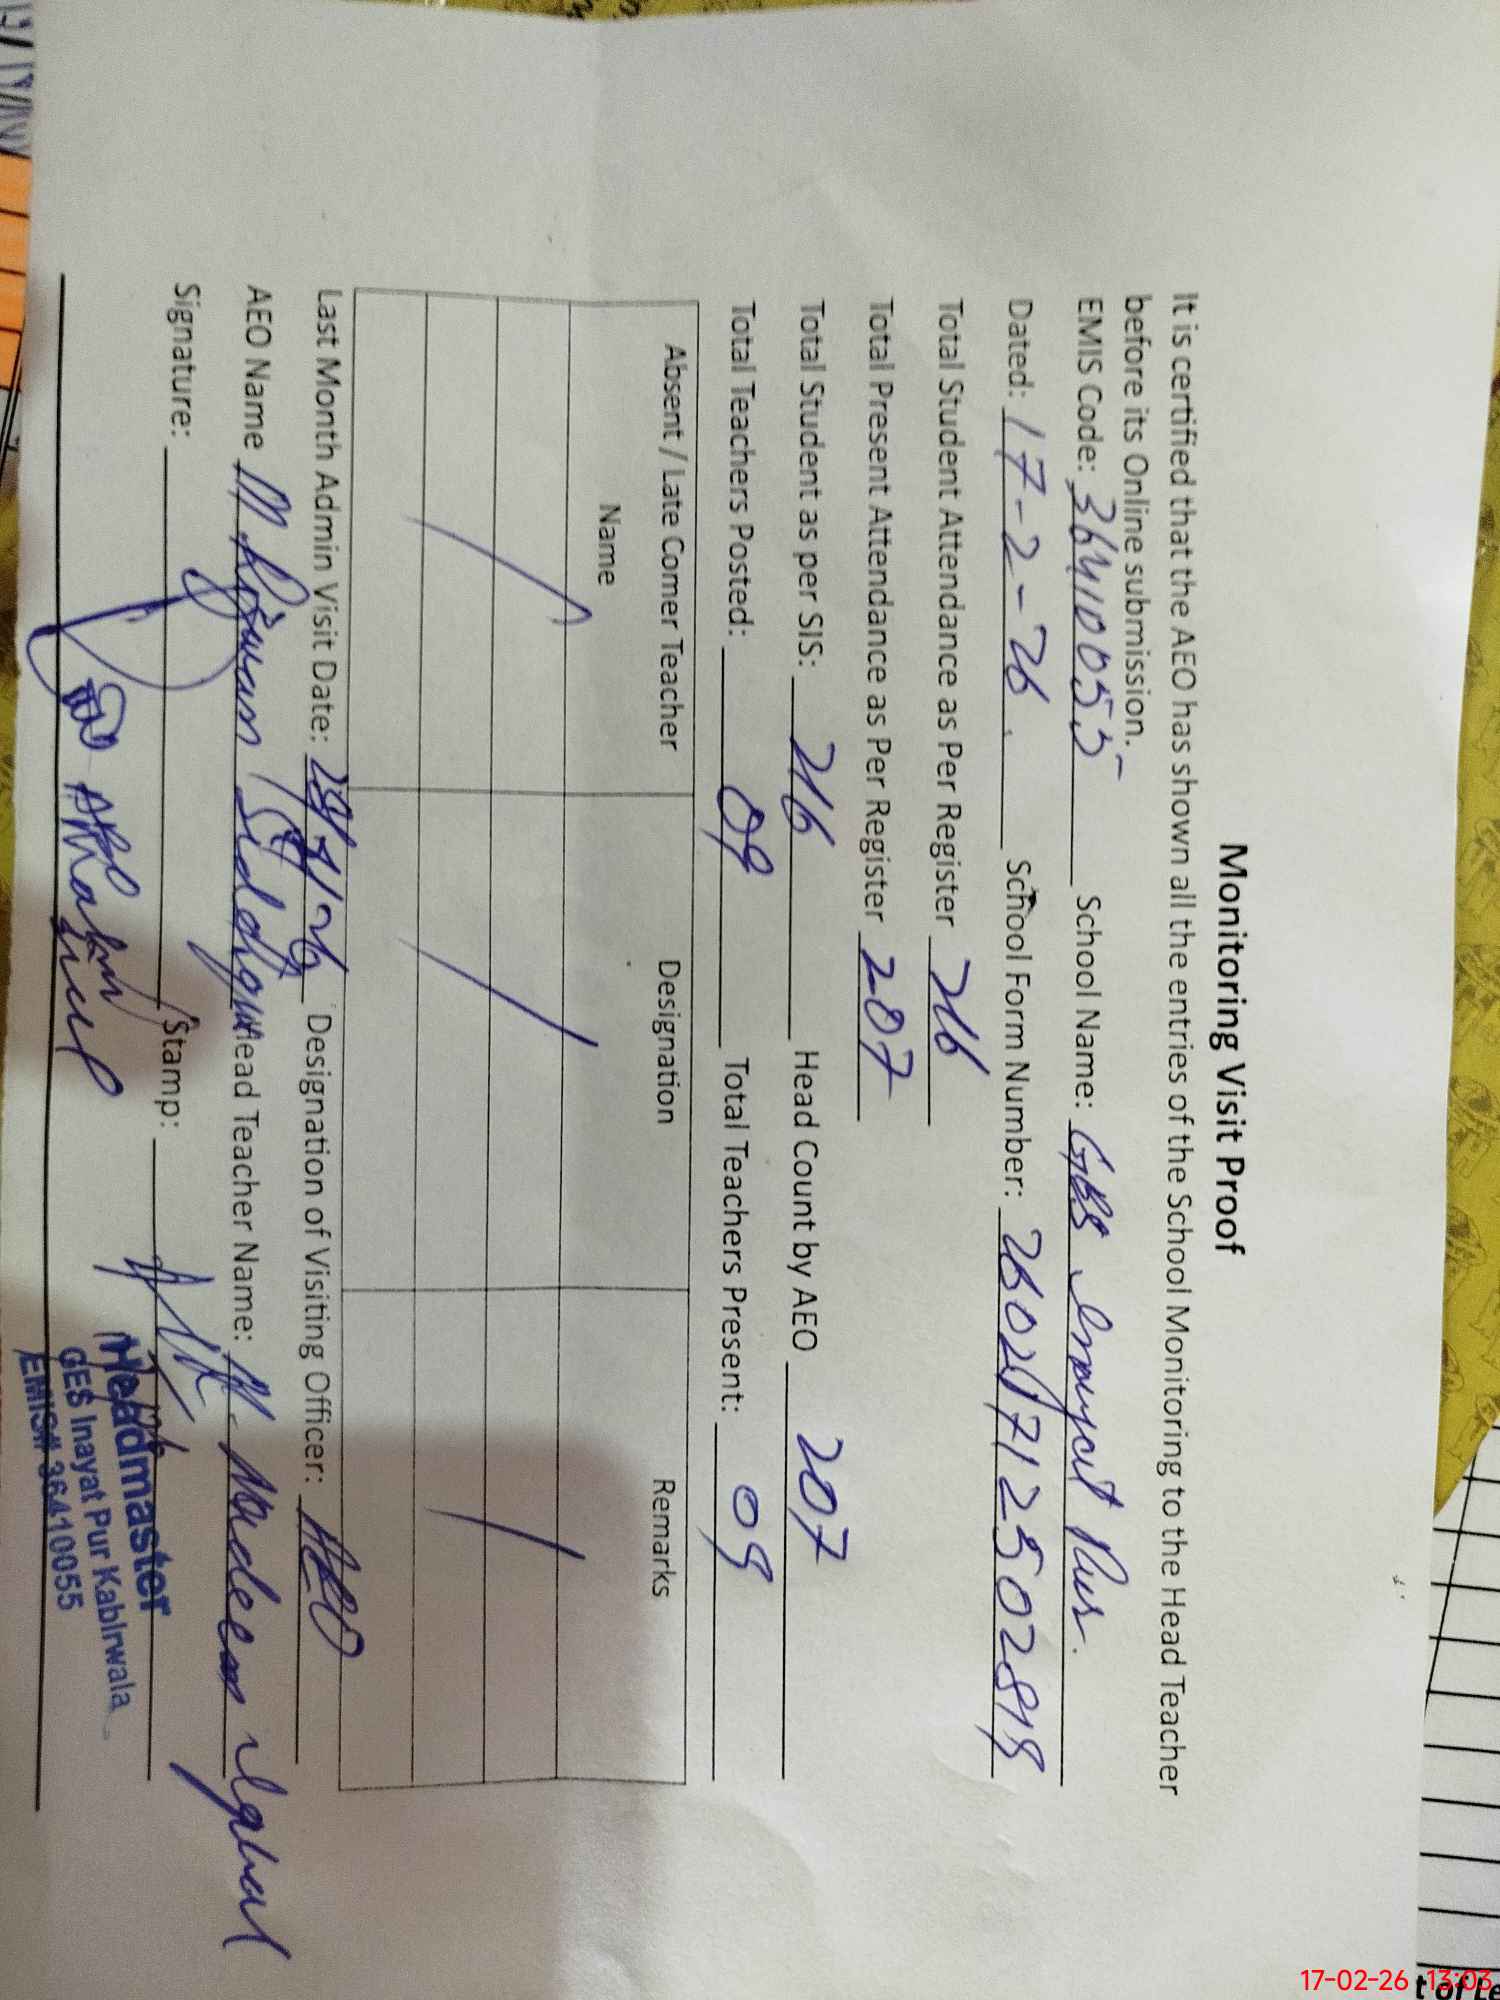 Monitoring Visit Proof
It is certified that the AEO has shown all the entries of the School Monitoring to the Head Teacher
before its Online submission.
EMIS Code: 36410055 School Name: GES Inayat Pur.
Dated: 17-2-26. School Form Number:
Total Student Attendance as Per Register 216
Total Present Attendance as Per Register 207
Total Student as per SIS: 216 Head Count by AEO 207
Total Teachers Posted: 09 Total Teachers Present: 09
Absent / Late Comer Teacher Designation Remarks
Name
Last Month Admin Visit Date: Designation of Visiting Officer: AEO
AEO Name M Rizwan Siddique Head Teacher Name: M. Nadeem Iqbal
Signature: Stamp:
AEO
Headmaster
GES Inayat Pur Kabirwala
EMIS# 36410055
17-02-26 13:03
t of Le